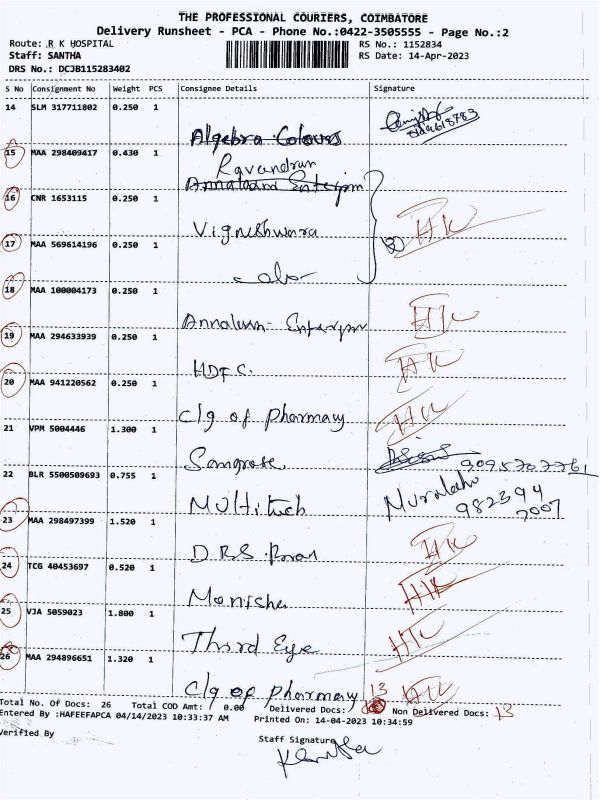 THE PROFESSIONAL COURIERS, COIMBATORE
Delivery Runsheet - PCA - Phone No.:0422-3505555 - Page No.:2
Route: R K HOSPITAL RS No.: 1152834
Staff: SANTHA RS Date: 14-Apr-2023
DRS No.: DCJB115283402
S No Consignment No Weight PCS Consignee Details Signature
14 SLM 317711802 0.250 1
Algebra Colours
15 MAA 298409417 0.430 1
Annalaam Enterprn
16 CNR 1653115 0.250 1
Vigneshwara
17 MAA 569614196 0.250 1
HK
18 MAA 100004173 0.250 1
HK
19 MAA 294633939 0.250 1
HDFC. HK
20 MAA 941220562 0.250 1
Clg of Pharmacy HK
21 VPM 5004446 1.300 1
Sangrose
22 BLR 5500509693 0.755 1
982394
2007
23 MAA 298497399 1.520 1
D.R.S. HK
24 TCG 40453697 0.520 1
Monisha HK
25 VJA 5059023 1.800 1
Third Eye HK
26 MAA 294896651 1.320 1
Clg of Pharmacy HK
13
Total No. Of Docs: 26 Total COD Amt: 0.00 Delivered Docs: Non Delivered Docs: 13
Entered By :HAFEEFAPCA 04/14/2023 10:33:37 AM Printed On: 14-04-2023 10:34:59
Verified By Staff Signature